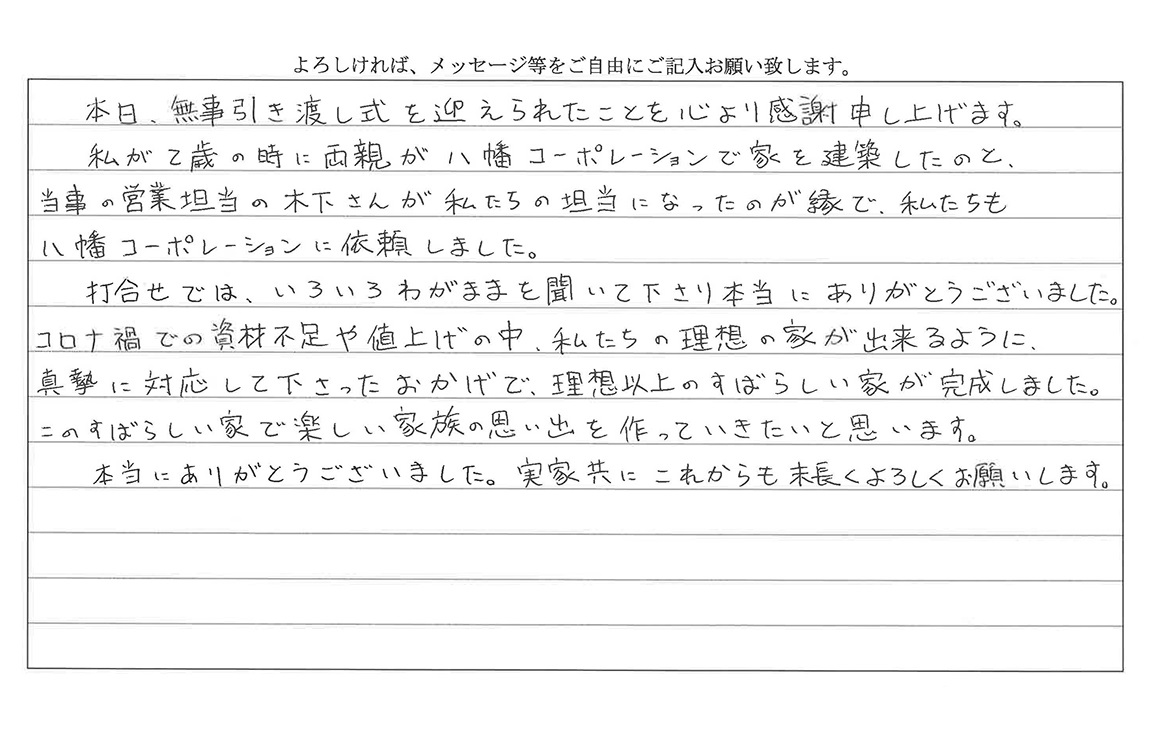 よろしければ、メッセージ等をご自由にご記入お願い致します。
本日、無事引き渡し式を迎えられたことを心より感謝申し上げます。
私が2歳の時に両親が八幡コーポレーションで家を建築したのと、
当事の営業担当の木下さんが私たちの担当になったのが縁で、私たちも
八幡コーポレーションに依頼しました。
打合せでは、いろいろわがままを聞いて下さり本当にありがとうございました。
コロナ禍での資材不足や値上げの中、私たちの理想の家が出来るように、
真摯に対応して下さったおかげで、理想以上のすばらしい家が完成しました。
このすばらしい家で楽しい家族の思い出を作っていきたいと思います。
本当にありがとうございました。実家共にこれからも末長くよろしくお願いします。